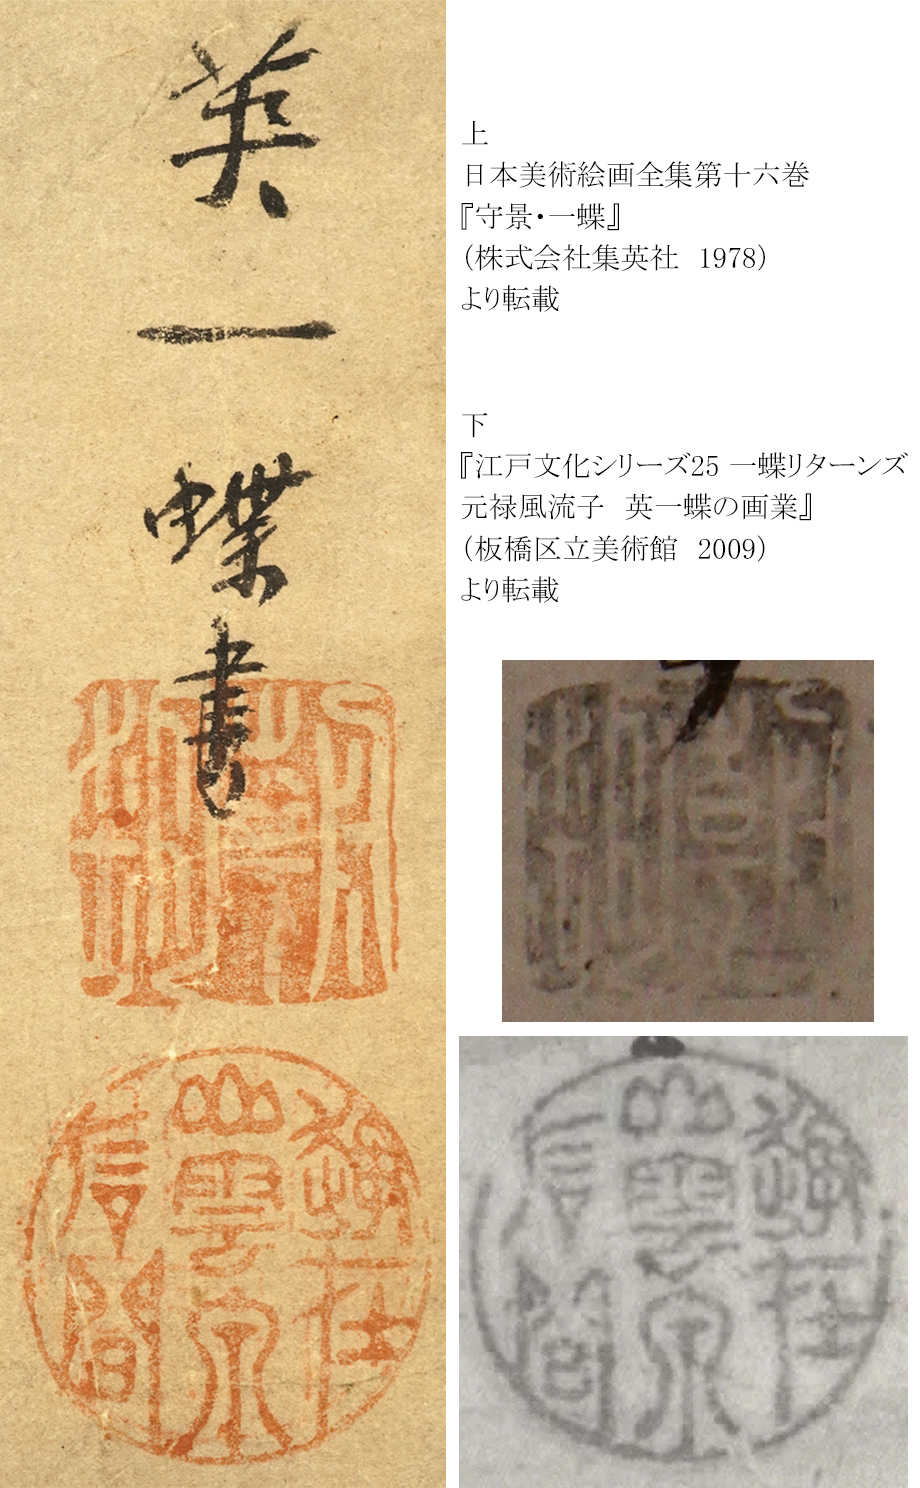 英一蝶書
上
日本美術絵画全集第十六巻
『守景・一蝶』
（株式会社集英社　1978）
より転載
下
『江戸文化シリーズ25 一蝶リターンズ
元禄風流子　英一蝶の画業』
（板橋区立美術館　2009）
より転載